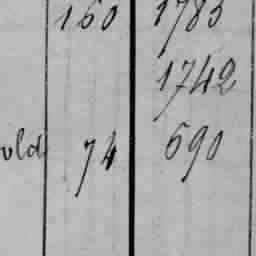 160 1783
1742
old 74 690